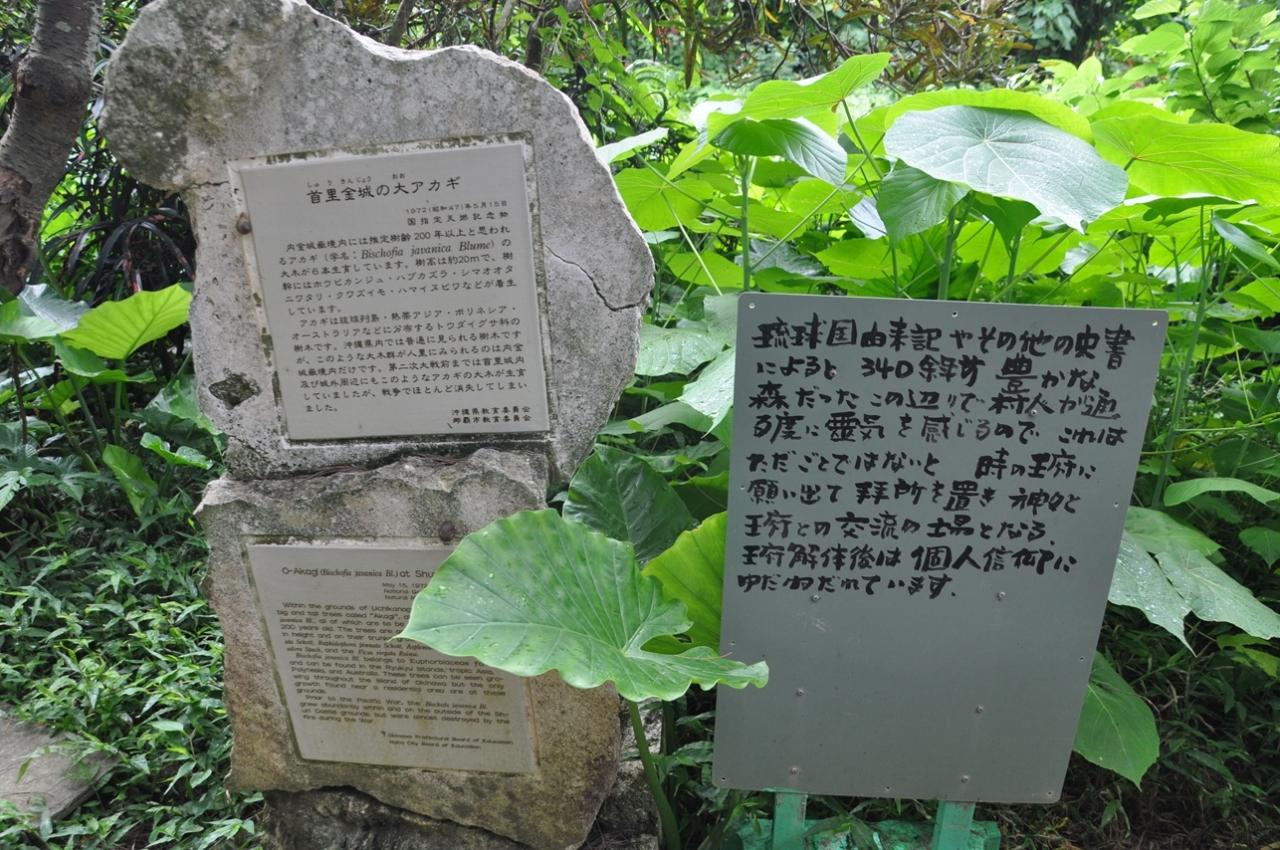 しゅりきんじょう おお
首里金城の大アカギ
1972(昭和47)年5月15日
国指定天然記念物
内金城嶽境内には推定樹齢200年以上と思われ
るアカギ（学名：Bischofia javanica Blume）の
大木が6本生育しています。樹高は約20mで、樹
幹にはホウビカンジュ・ハブカズラ・シマオオタ
ニワタリ・クワズイモ・ハマイヌビワなどが着生
しています。
アカギは琉球列島・熱帯アジア・ポリネシア・
オーストラリアなどに分布するトウダイグサ科の
樹木です。沖縄県内では普通に見られる樹木です
が、このような大木群が人里にみられるのは内金
城嶽境内だけです。第二次大戦前までは首里城内
及び城外周辺にもこのようなアカギの大木が生育
していましたが、戦争でほとんど消失してしまい
ました。
沖縄県教育委員会
那覇市教育委員会
O-Akagi (Bischofia javanica Bl.) at Shu
May 15, 1972
National
Natural
Within the grounds of Uchikanag
big and tall trees called "Akagi",
javanica Bl., all of which are to be
200 years old. The trees are
in height and on their trunk
Schott,
and the Ficus virgata Reinw.
Bischofia javanica Bl. belongs to Euphorbiaceae
and can be found in the Ryukyu Islands, tropic Asia,
Polynesia, and Australia. These trees can be seen gro-
wing throughout the island of Okinawa but the only
growth found near a residential area are at these
grounds.
Prior to the Pacific War, the Bischofia javanica Bl.
grew abundantly within and on the outside of the Sh-
uri Castle grounds, but were almost destroyed by the
fire during the War.
Okinawa Prefectural Board of Education
Naha City Board of Education
琉球国由来記やその他の史書
によると 340余年前 豊かな
森だった この辺りで 村人が通
る度に靈気を感じるので これは
ただごとではないと 時の王府に
願い出て 拝所を置き 神々と
王府との交流の場となる.
王府解体後は個人信仰に
ゆだねだれています.